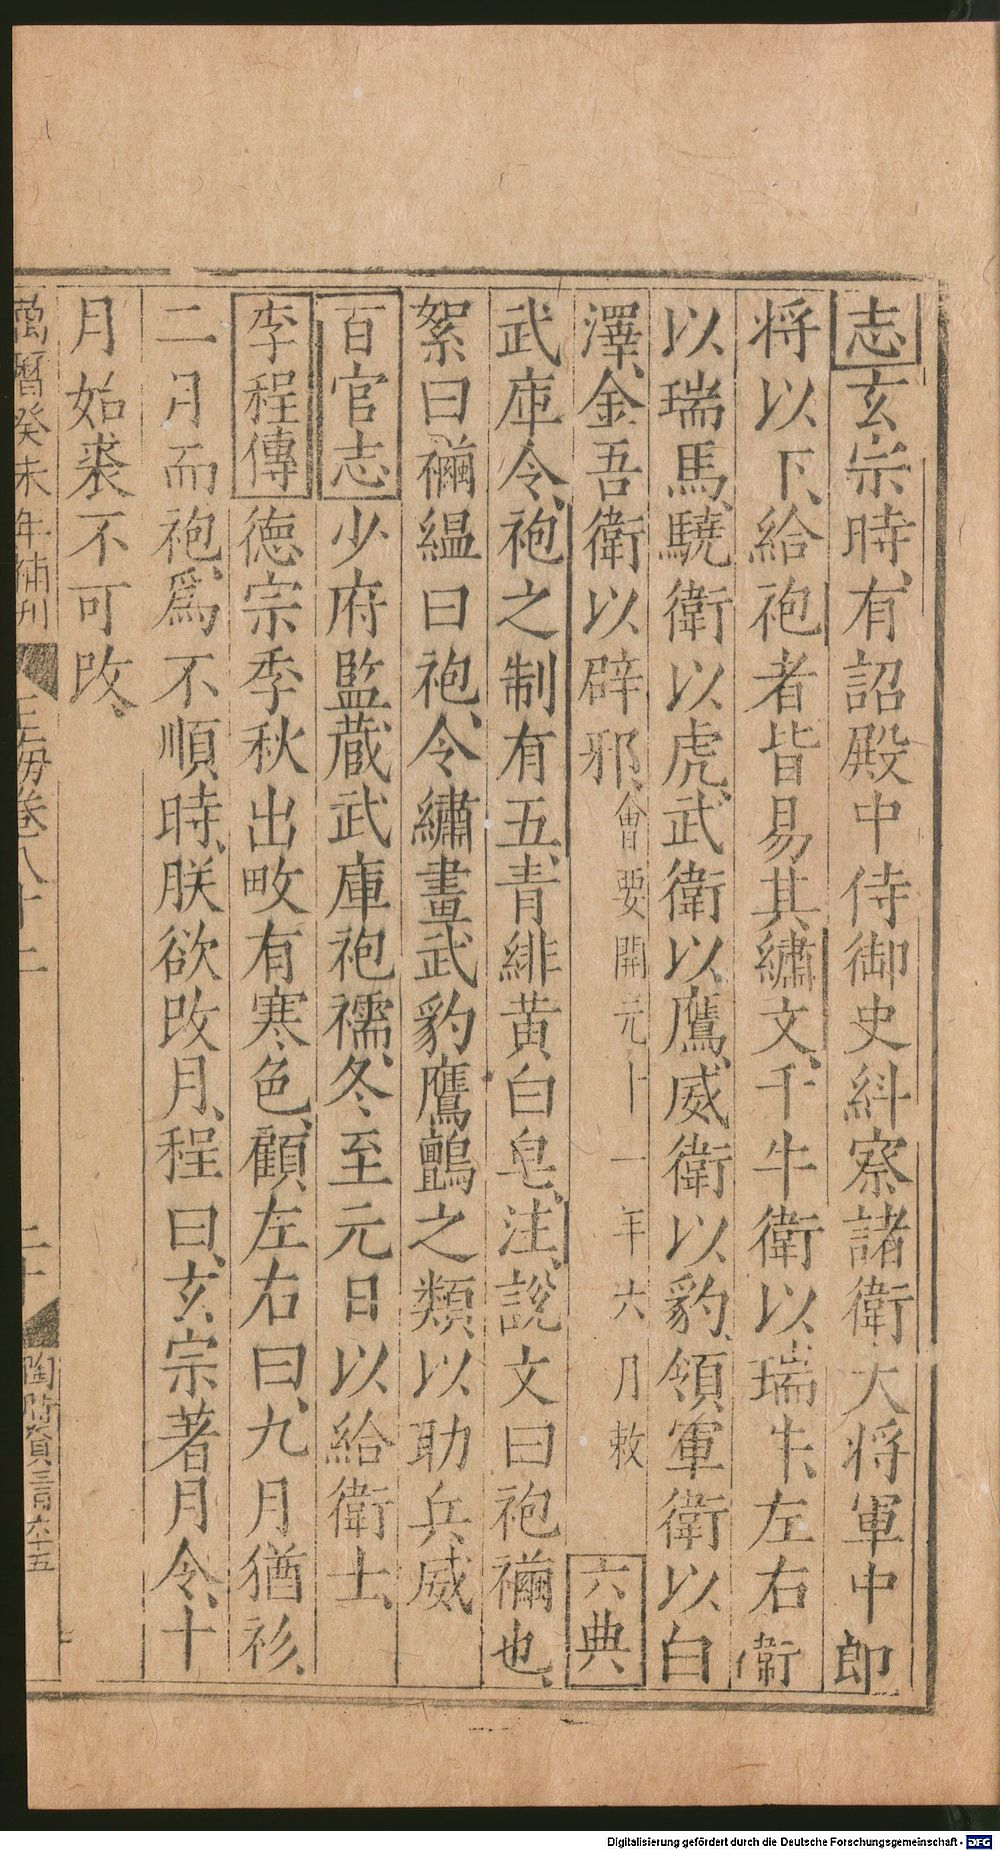 志玄宗時、有詔殿中侍御史糾察諸衛大將軍中郎
将以下、給袍者皆易其繡文、千牛衛以瑞牛、左右衛
以瑞馬、驍衛以虎、武衛以鷹、威衛以豹、領軍衛以白
澤、金吾衛以辟邪、會要開元十一年六月敕六典
武庫令、袍之制有五、青緋黄白皂、注、說文曰袍襺也、
絮曰襺縕曰袍、令繡畫武豹鷹鸇之類、以助兵威
百官志少府監蔵武庫袍襦、冬至元日以給衛士、
李程傳德宗季秋出畋有寒色、顧左右曰、九月猶衫、
二月而袍、爲不順時、朕欲改月、程曰、玄宗著月令、十
月始裘、不可改、
萬曆癸未年補刊
玉海卷八十二
二十
陶時資三百六十五
Digitalisierung gefördert durch die Deutsche Forschungsgemeinschaft - DFG